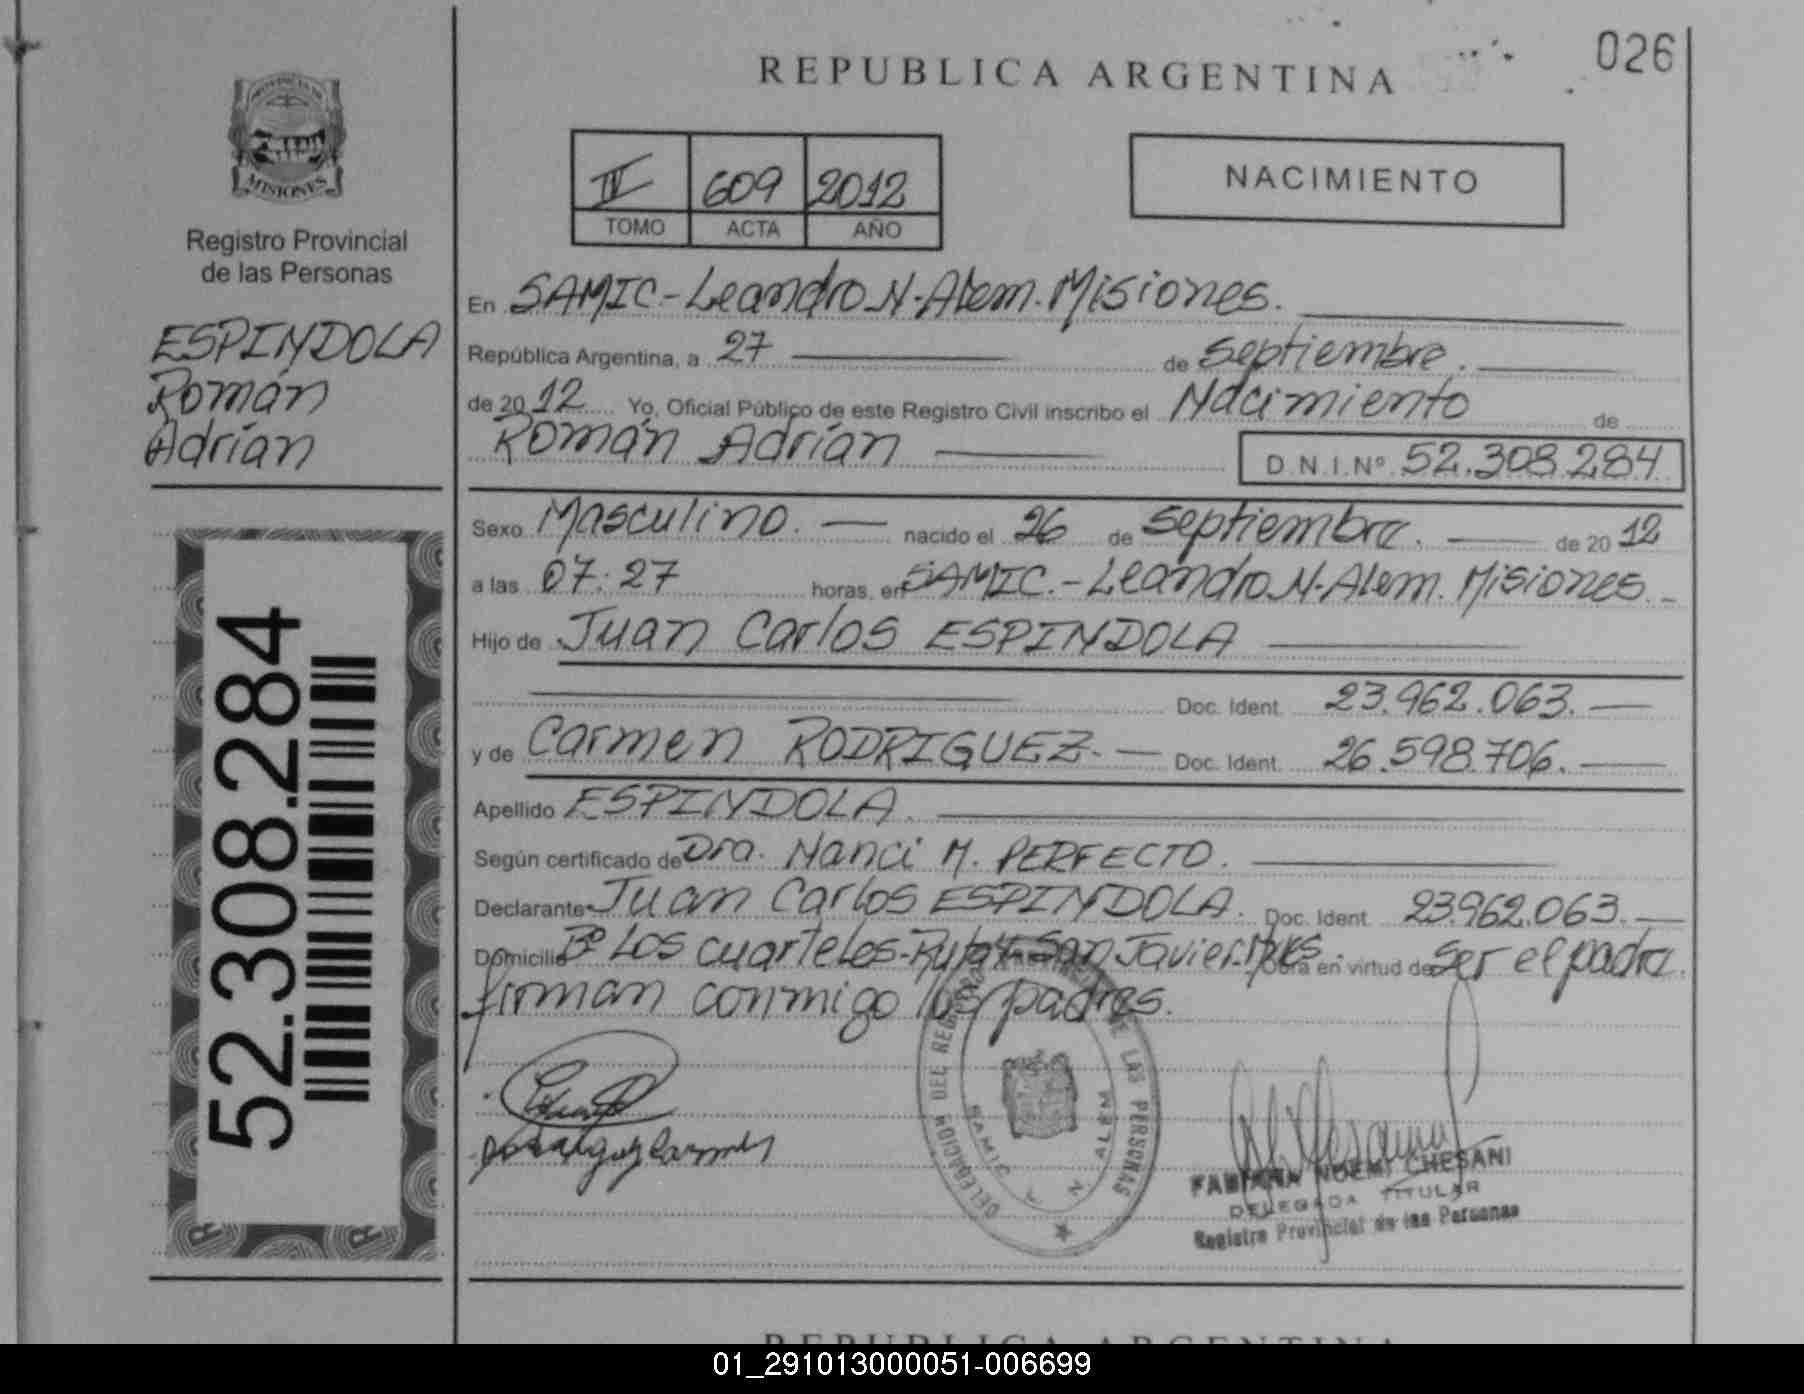 026
REPUBLICA ARGENTINA
IV 609 2012
TOMO ACTA AÑO
NACIMIENTO
MISIONES
Registro Provincial
de las Personas
ESPINDOLA
Román
Adrían
52.308.284
En SAMIC-Leandro N-Alem. Misiones.
República Argentina, a 27 de septiembre.
de 2012 Yo, Oficial Público de este Registro Civil inscribo el Nacimiento de
Román Adrían D.N.I.Nº 52.308.284
Sexo Masculino. nacido el 26 de septiembre. de 2012
a las 07:27 horas, en SAMIC.-Leandro N-Alem. Misiones.
Hijo de Juan Carlos ESPINDOLA
Doc. Ident. 23.962.063.
y de Carmen RODRIGUEZ. Doc. Ident. 26.598.706.
Apellido ESPINDOLA.
Según certificado de Dra. Nanci M. PERFECTO.
Declarante Juan Carlos ESPINDOLA. Doc. Ident. 23.962.063.
Domicilio Bº Los cuarteles-Ruta 4-San Javier. Mnes. Obra en virtud de ser el padre
firman conmigo los padres.
DELEGACIÓN DEL REGISTRO DE LAS PERSONAS
SAMIC N ALEM
Rodriguez Carmen
FABIANA NOEMI CHESANI
DELEGADA TITULAR
Registro Provincial de las Personas
REPUBLICA ARGENTINA
01_291013000051-006699